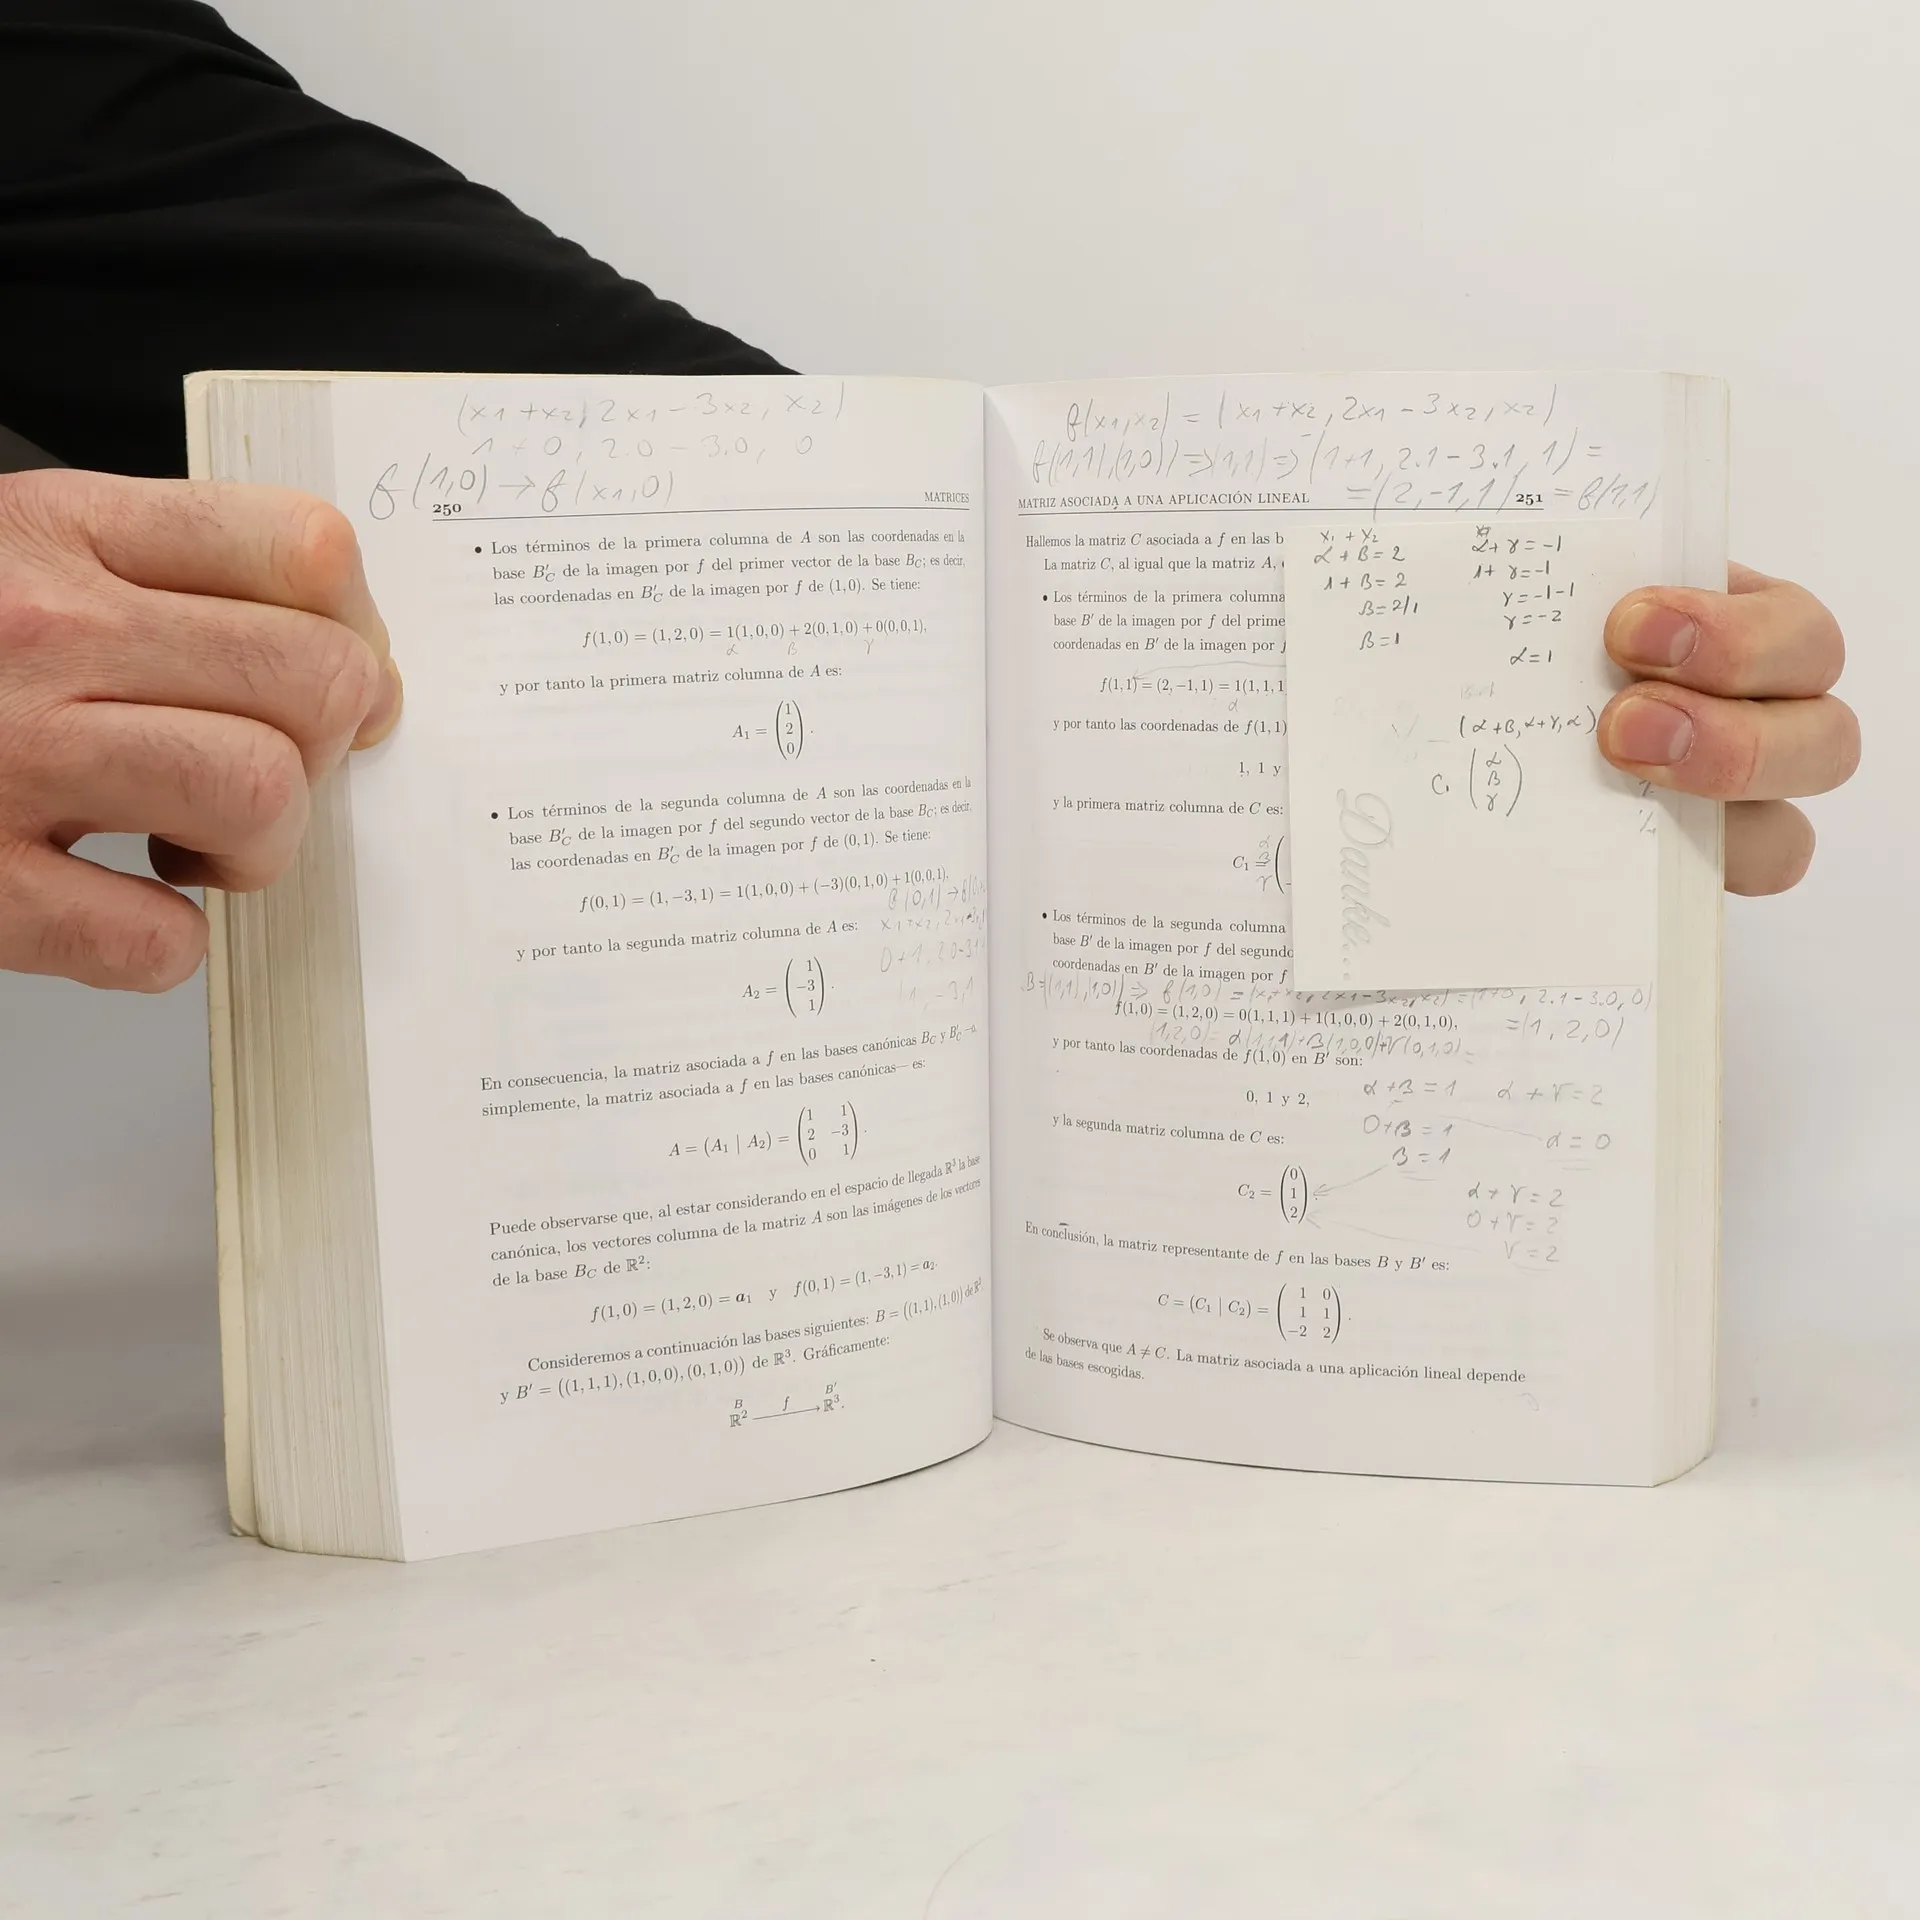 (x1 + x2, 2x1 - 3x2, x2)
1 + 0, 2.0 - 3.0, 0
f(1,0) → f(x1,0)
250 MATRICES
• Los términos de la primera columna de A son las coordenadas en la
base B′C de la imagen por f del primer vector de la base BC; es decir,
las coordenadas en B′C de la imagen por f de (1,0). Se tiene:
f(1,0) = (1,2,0) = 1(1,0,0) + 2(0,1,0) + 0(0,0,1),
α β γ
y por tanto la primera matriz columna de A es:
A1 = (1 2 0).
• Los términos de la segunda columna de A son las coordenadas en la
base B′C de la imagen por f del segundo vector de la base BC; es decir,
las coordenadas en B′C de la imagen por f de (0,1). Se tiene:
f(0,1) = (1,−3,1) = 1(1,0,0) + (−3)(0,1,0) + 1(0,0,1),
f(0,1) → f(0,
y por tanto la segunda matriz columna de A es:
x1+x2, 2x1-3x
0+1, 2.0-3.1
A2 = (1 −3 1).
1, -3,1
En consecuencia, la matriz asociada a f en las bases canónicas BC y B′C —o
simplemente, la matriz asociada a f en las bases canónicas— es:
A = (A1 | A2) = (1 1 2 −3 0 1).
Puede observarse que, al estar considerando en el espacio de llegada ℝ³ la base
canónica, los vectores columna de la matriz A son las imágenes de los vectores
de la base BC de ℝ²:
f(1,0) = (1,2,0) = a1 y f(0,1) = (1,−3,1) = a2.
Consideremos a continuación las bases siguientes: B = ((1,1),(1,0)) de ℝ²
y B′ = ((1,1,1),(1,0,0),(0,1,0)) de ℝ³. Gráficamente:
B f B′
ℝ² ⟶ ℝ³.
f(x1,x2) = (x1 + x2, 2x1 - 3x2, x2)
f(1,1),(1,0)) ⇒ (1,1) ⇒ (1+1, 2.1 - 3.1, 1) =
= (2,-1,1) = f(1,1)
MATRIZ ASOCIADA A UNA APLICACIÓN LINEAL 251
Hallemos la matriz C asociada a f en las b
La matriz C, al igual que la matriz A,
• Los términos de la primera columna
base B′ de la imagen por f del prime
coordenadas en B′ de la imagen por f
f(1,1) = (2,−1,1) = 1(1,1,1
α
y por tanto las coordenadas de f(1,1)
1, 1 y
y la primera matriz columna de C es:
α
C1 = (
β
γ
x1 + x2
α + β = 2 α + γ = -1
1 + β = 2 1 + γ = -1
β = 2/1 γ = -1-1
β = 1 γ = -2
α = 1
(α+β, α+γ, α)
C1 (α β γ)
Danke...
• Los términos de la segunda columna
base B′ de la imagen por f del segundo
coordenadas en B′ de la imagen por f
B=((1,1),(1,0)) ⇒ f(1,0) = (x1+x2, 2x1-3x2, x2) = (1+0, 2.1-3.0, 0)
f(1,0) = (1,2,0) = 0(1,1,1) + 1(1,0,0) + 2(0,1,0),
=(1, 2, 0)
(1,2,0) = α(1,1,1)+β(1,0,0)+γ(0,1,0) =
y por tanto las coordenadas de f(1,0) en B′ son:
0, 1 y 2,
α + β = 1 α + γ = 2
y la segunda matriz columna de C es:
0+β = 1 α = 0
β = 1
C2 = (0 1 2).
α + γ = 2
0 + γ = 2
γ = 2
En conclusión, la matriz representante de f en las bases B y B′ es:
C = (C1 | C2) = (1 0 1 1 −2 2).
Se observa que A ≠ C. La matriz asociada a una aplicación lineal depende
de las bases escogidas.